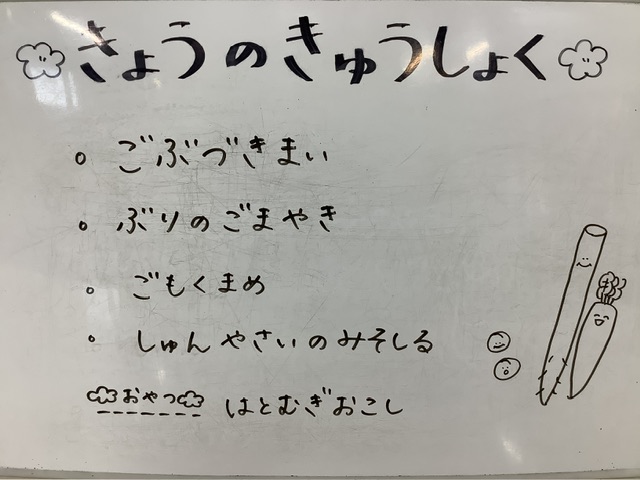 きょうのきゅうしょく
。ごぶづきまい
。ぶりのごまやき
。ごもくまめ
。しゅんやさいのみそしる
おやつ はとむぎおこし